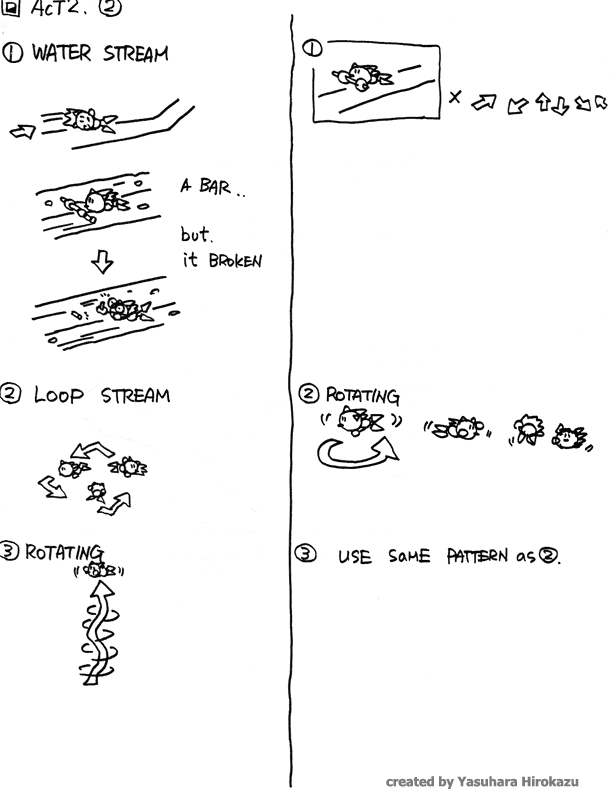 ACT2. ②
① WATER STREAM
A BAR..
but.
it BROKEN
② LOOP STREAM
③ ROTATING
①
×
② ROTATING
③ USE SAME PATTERN as ②.
created by Yasuhara Hirokazu